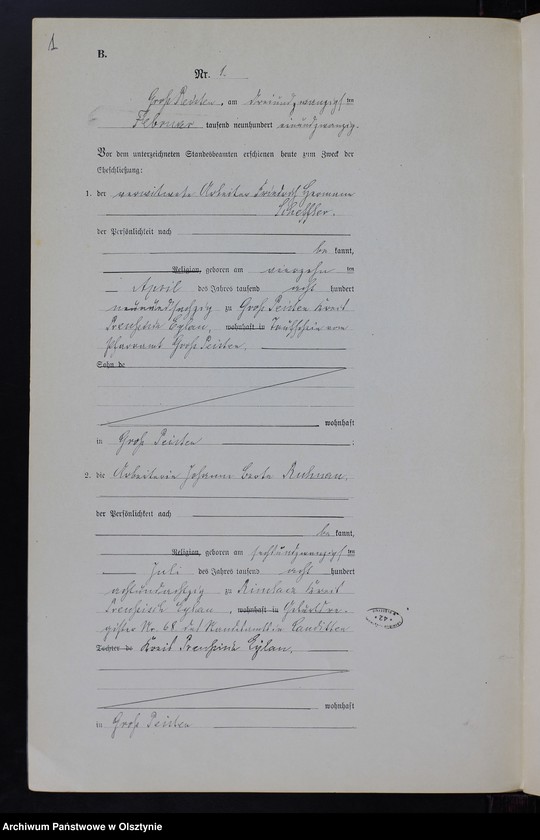 1
B.
Nr. 1.
Groß Peisten, am dreiundzwanzigsten
Februar tausend neunhundert einundzwanzig.
Vor dem unterzeichneten Standesbeamten erschienen heute zum Zweck der
Eheschließung:
1. der verwitwete Arbeiter Friedrich Hermann
Scheffler,
der Persönlichkeit nach
be kannt,
Religion, geboren am vierzehnten
April des Jahres tausend acht hundert
neunundsechzig zu Groß Peisten Kreis
Preußisch Eylau, wohnhaft in Taufschein vom
Pfarramt Groß Peisten,
Sohn de
wohnhaft
in Groß Peisten ;
2. die Arbeiterin Johanne Berta Ruhnau,
der Persönlichkeit nach
be kannt,
Religion, geboren am sechsundzwanzigsten
Juli des Jahres tausend acht hundert
achtundachtzig zu Kreis
Preußisch Eylau, wohnhaft in Geburtsre-
gister Nr. 68 des Standesamts in Landsberg
Tochter de Kreis Preußisch Eylau,
wohnhaft
in Groß Peisten
Archiwum Państwowe w Olsztynie